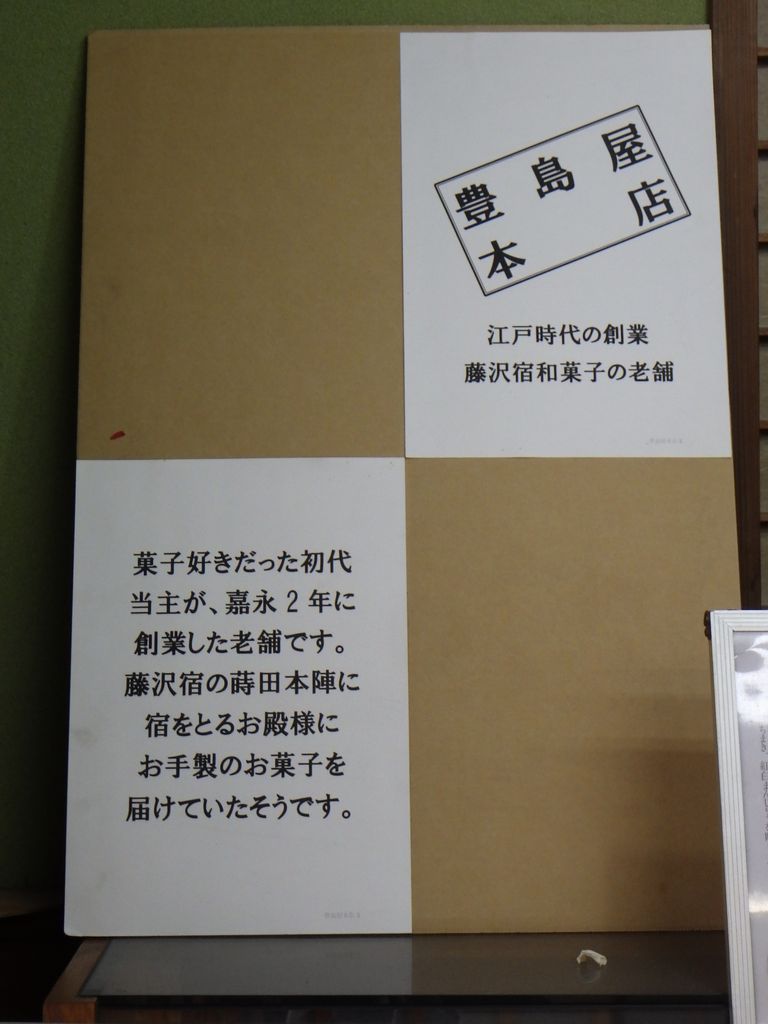 豊島屋
本店
江戸時代の創業
藤沢宿和菓子の老舗
菓子好きだった初代
当主が、嘉永２年に
創業した老舗です。
藤沢宿の蒔田本陣に
宿をとるお殿様に
お手製のお菓子を
届けていたそうです。